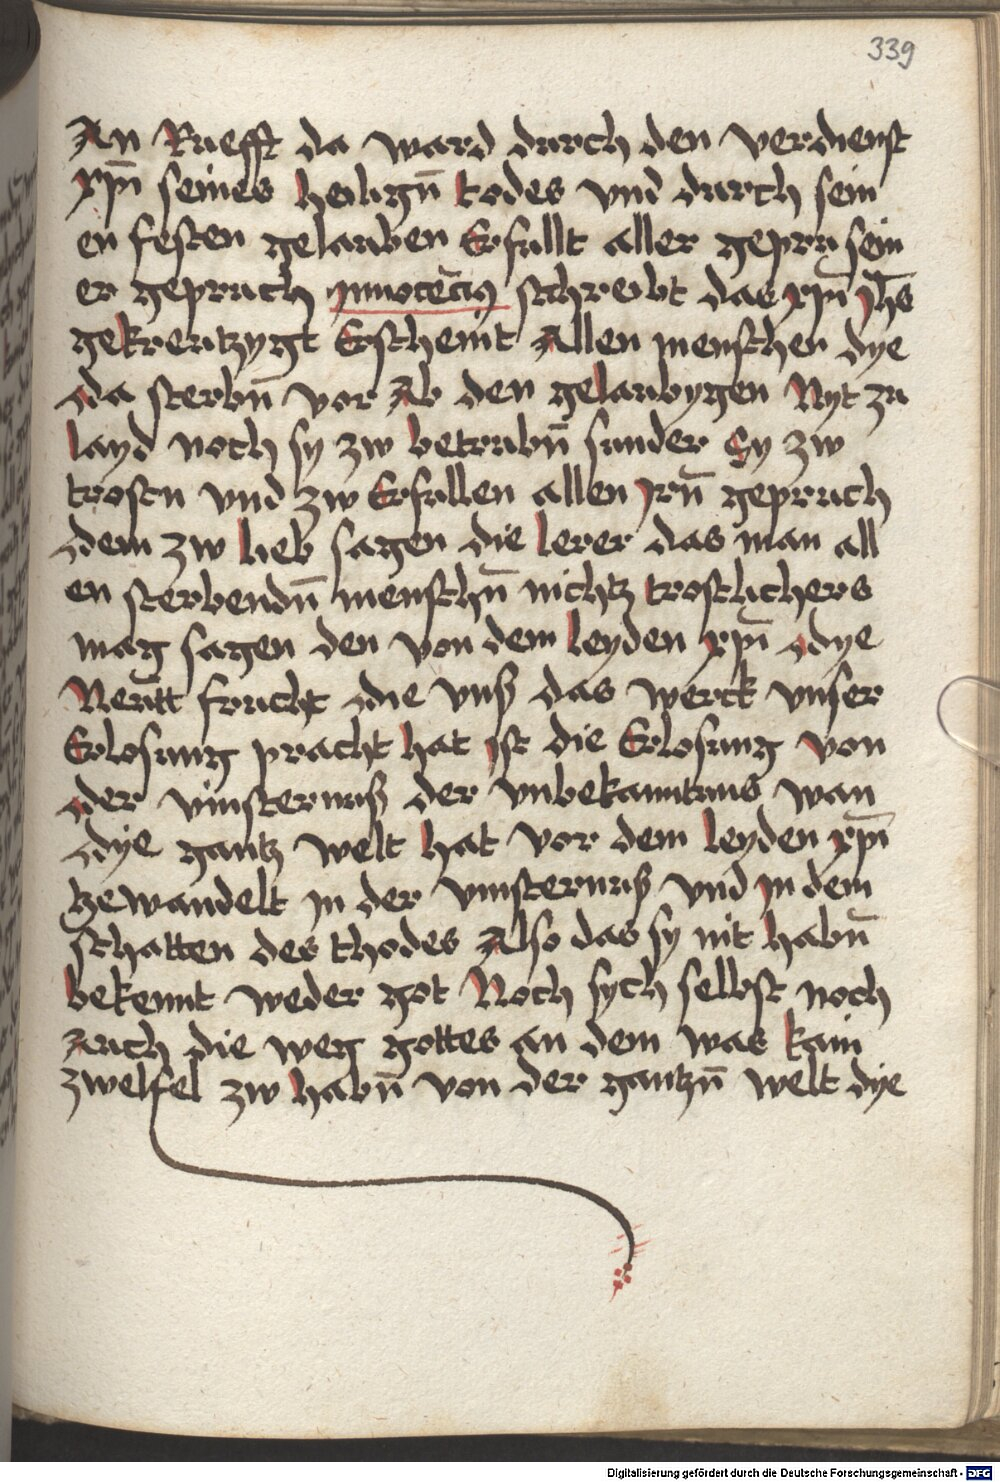 339
An Ruefft da ward durch den verdienst
xp̄i seines heilign̄ todes vnd durch sein
en festen gelauben Erfullt aller gepru sein
er gepruch Innocēcius schreibt das xp̄i Jh̄s
gekreutzygt Erscheint Allen menschen dye
da sterbn̄ vor Ab den gelaubygen Nyt zu
layd noch sy zw betrubn̄ sunder Sy zw
trostn vnd zw Erfullen allen Jrn̄ gepruch
dem zw lieb sagen die lerer das man all
en sterbendn̄ menschn̄ nichtz trostlichers
mag sagen den von dem leyden xp̄i dye
Neutt frucht die vnß das werck vnser
Erlosung pracht hat ist die Erlosung von
der vinsternuß der vnbekanntnus wan
dye gantz welt hat vor dem leyden xp̄i
gewandelt in der vinsternuß vnd in dem
schatten des thodes Also das sy nit habn̄
bekennt weder got Noch sych selbst noch
auch die weg gottes an dem was kain
zweifel zw habn̄ von der gantzn̄ welt dye
Digitalisierung gefördert durch die Deutsche Forschungsgemeinschaft - DFG